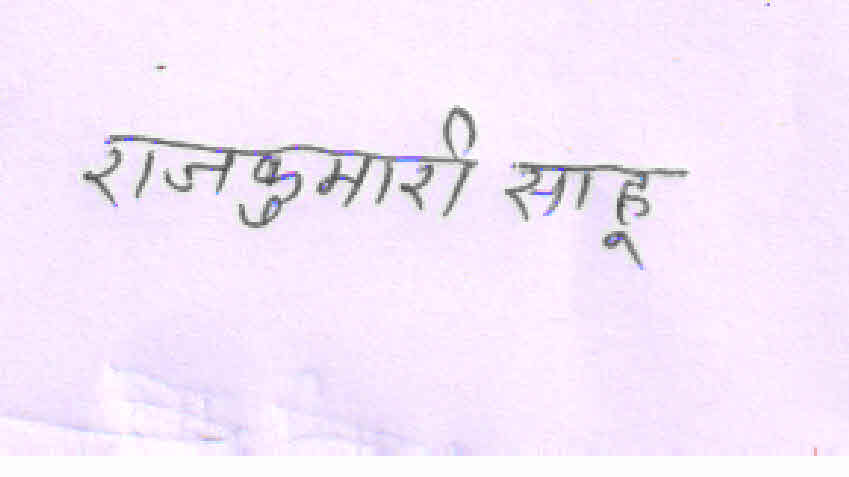 राजकुमारी साहू